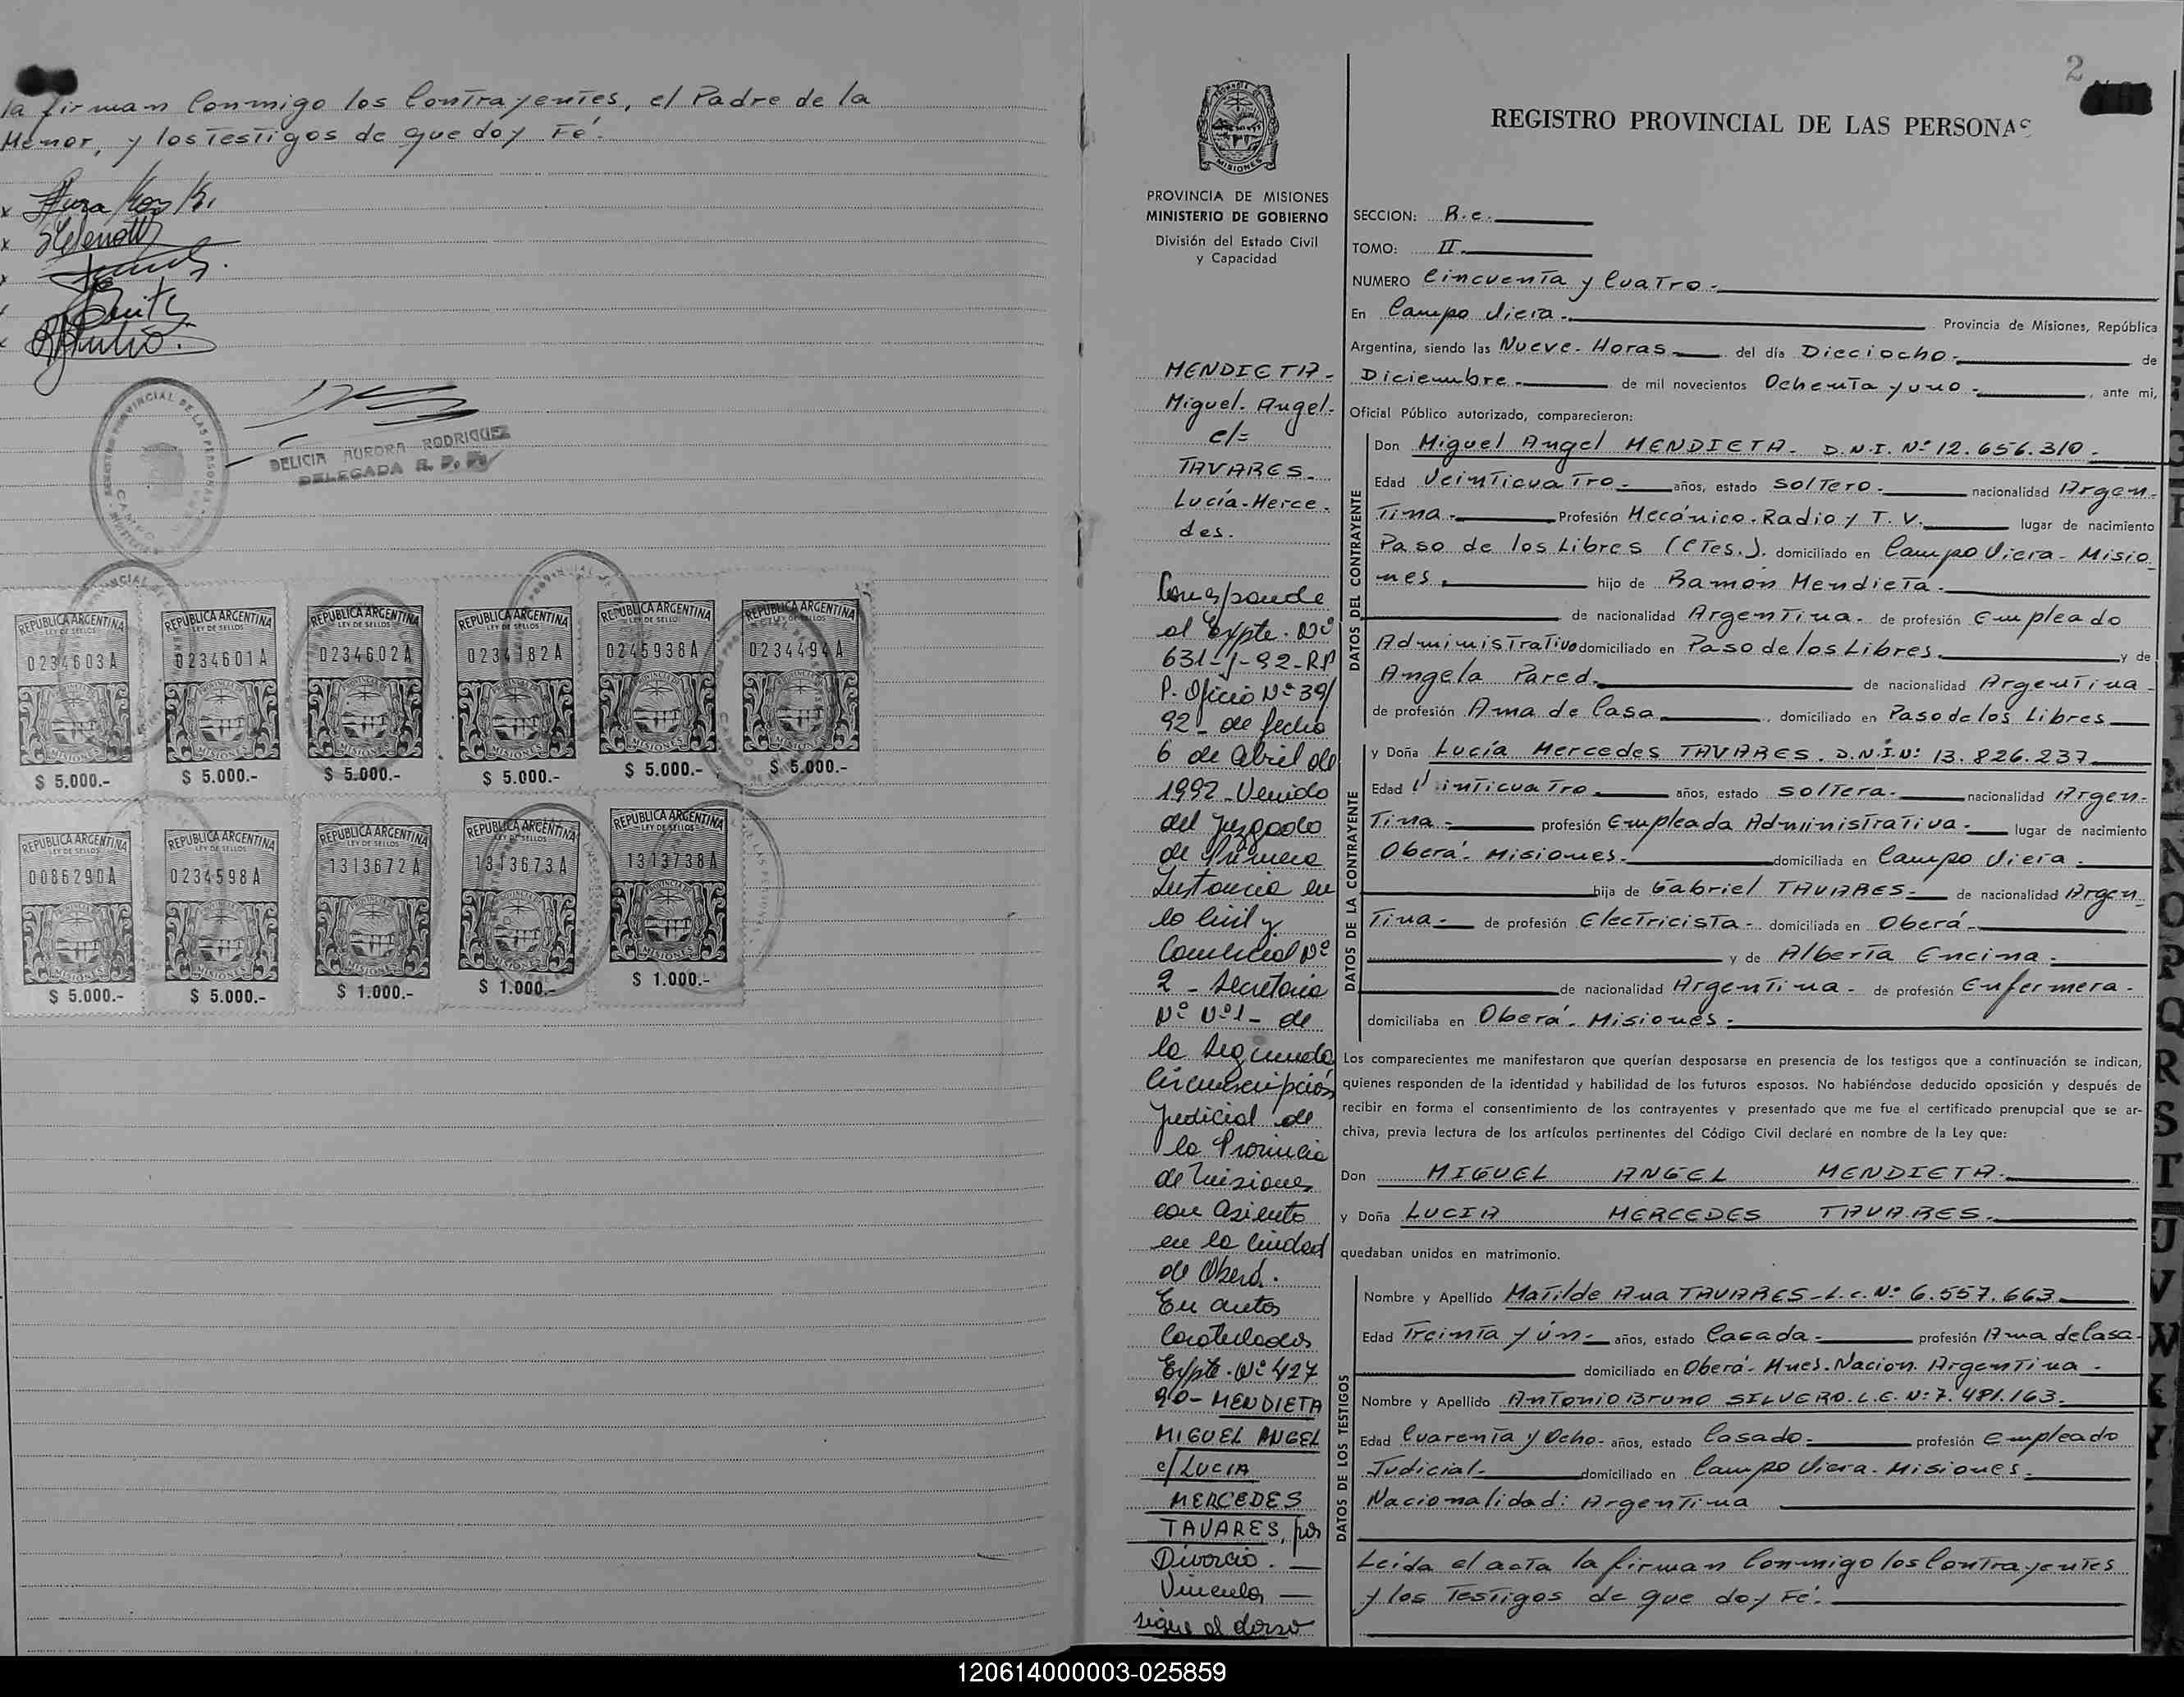 la firman Conmigo los Contrayentes, el Padre de la
Menor, y los Testigos de que doy Fé.
DELICIA AURORA RODRIGUEZ
DELEGADA R. P. P.
REPUBLICA ARGENTINA
LEY DE SELLOS
0234603A
MISIONES
$ 5.000.-
REPUBLICA ARGENTINA
LEY DE SELLOS
0234601A
MISIONES
$ 5.000.-
REPUBLICA ARGENTINA
LEY DE SELLOS
0234602A
MISIONES
$ 5.000.-
REPUBLICA ARGENTINA
LEY DE SELLOS
0234182A
MISIONES
$ 5.000.-
REPUBLICA ARGENTINA
LEY DE SELLOS
0245938A
MISIONES
$ 5.000.-
REPUBLICA ARGENTINA
LEY DE SELLOS
0234494A
MISIONES
$ 5.000.-
REPUBLICA ARGENTINA
LEY DE SELLOS
0086290A
MISIONES
$ 5.000.-
REPUBLICA ARGENTINA
LEY DE SELLOS
0234598A
MISIONES
$ 5.000.-
REPUBLICA ARGENTINA
LEY DE SELLOS
1313672A
MISIONES
$ 1.000.-
REPUBLICA ARGENTINA
LEY DE SELLOS
1313673A
MISIONES
$ 1.000.-
REPUBLICA ARGENTINA
LEY DE SELLOS
1313738A
MISIONES
$ 1.000.-
MISIONES
PROVINCIA DE MISIONES
MINISTERIO DE GOBIERNO
División del Estado Civil
y Capacidad
MENDIETA-
Miguel. Angel.
c/=
TAVARES.
Lucía-Merce.
des.
Corresponde
al Expte. Nº
631-J-92-RP
P. Oficio Nº 39/
92- de fecha
6 de Abril de
1992- Venido
del Juzgado
de Primera
Instancia en
lo Civil y
Comercial Nº
2 - Secretaria
Nº Nº1- de
la Segunda
Circunscripción
Judicial de
la Provincia
de Misiones
con asiento
en la Ciudad
de Oberá.
En autos
Caratulados
Expte. Nº 427
90- MENDIETA
MIGUEL ANGEL
c/ LUCIA
MERCEDES
TAVARES, por
Divorcio. —
Vincular —
sigue al dorso
2
REGISTRO PROVINCIAL DE LAS PERSONAS
SECCION: R.c.
TOMO: II
NUMERO Cincuenta y Cuatro-
En Campo Viera- Provincia de Misiones, República
Argentina, siendo las Nueve-Horas del día Dieciocho- de
Diciembre- de mil novecientos Ochenta y uno-, ante mi,
Oficial Público autorizado, comparecieron:
DATOS DEL CONTRAYENTE
Don Miguel Angel MENDIETA- D.N.I. Nº 12.656.310-
Edad Veinticuatro- años, estado Soltero- nacionalidad Argen-
tina- Profesión Mecánico-Radio y T.V. lugar de nacimiento
Paso de los Libres (CTes.). domiciliado en Campo Viera- Misio
nes. hijo de Ramón Mendieta-
de nacionalidad Argentina- de profesión Empleado
Administrativo domiciliado en Paso de los Libres. y de
Angela Pared. de nacionalidad Argentina
de profesión Ama de Casa, domiciliado en Paso de los Libres
DATOS DE LA CONTRAYENTE
y Doña Lucía Mercedes TAVARES. D.N.I.Nº 13.826.237
Edad Veinticuatro años, estado Soltera- nacionalidad Argen-
tina- profesión Empleada Administrativa- lugar de nacimiento
Oberá- Misiones. domiciliada en Campo Viera-
hija de Gabriel TAVARES- de nacionalidad Argen-
tina- de profesión Electricista- domiciliada en Oberá-
y de Alberta Encina-
de nacionalidad Argentina- de profesión Enfermera-
domiciliaba en Oberá- Misiones-
Los comparecientes me manifestaron que querían desposarse en presencia de los testigos que a continuación se indican,
quienes responden de la identidad y habilidad de los futuros esposos. No habiéndose deducido oposición y después de
recibir en forma el consentimiento de los contrayentes y presentado que me fue el certificado prenupcial que se ar-
chiva, previa lectura de los artículos pertinentes del Código Civil declaré en nombre de la Ley que:
Don MIGUEL ANGEL MENDIETA-
y Doña LUCIA MERCEDES TAVARES-
quedaban unidos en matrimonio.
DATOS DE LOS TESTIGOS
Nombre y Apellido Matilde Ana TAVARES-L.C. Nº 6.557.663
Edad Treinta y ún- años, estado Casada- profesión Ama de Casa-
domiciliado en Oberá- Mnes. Nacion. Argentina-
Nombre y Apellido Antonio Bruno SILVERO. L.E. Nº 7.481.163-
Edad Cuarenta y Ocho- años, estado Casado- profesión Empleado
Judicial- domiciliado en Campo Viera. Misiones-
Nacionalidad: Argentina
Leída el acta la firman Conmigo los Contrayentes
y los Testigos de que doy Fé.
120614000003-025859